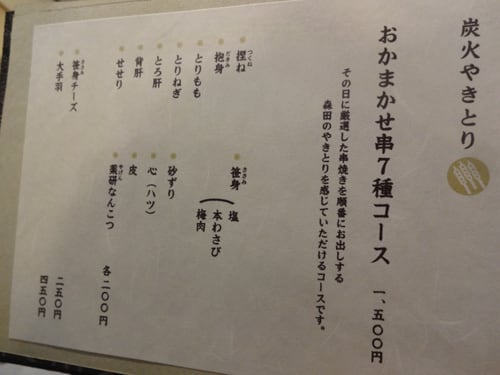 炭火やきとり
おかまかせ串7種コース 一、五〇〇円
その日に厳選した串焼きを順番にお出しする
森田のやきとりを感じていただけるコースです。
捏ね つくね
笹身 ささみ 塩
本わさび
梅肉
抱身 だきみ
とりもも
砂ずり
とりねぎ
心(ハツ)
とろ肝
皮
背肝
薬研なんこつ やげん
せせり
各二〇〇円
笹身チーズ ささみ
二五〇円
大手羽
四五〇円